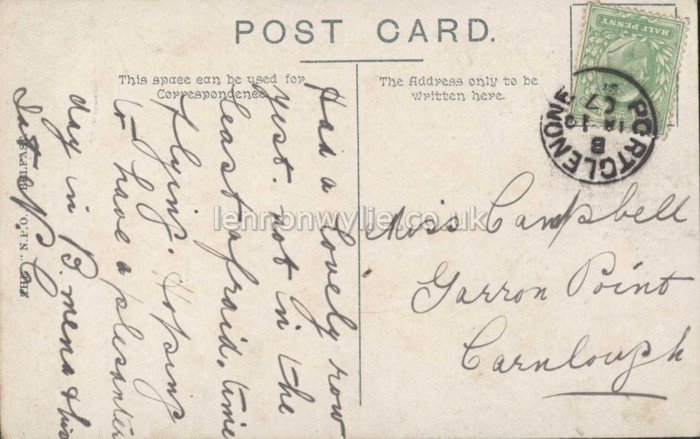 POST CARD.
This space can be used for
Correspondence
The Address only to be
written here.
HALF PENNY
PORTGLENONE
B
07
Miss Campbell
Garron Point
Carnlough
Had a lovely row
yest. not in the
least afraid. time
flying. Hoping
to have a plesanter
day in B.mena & this
lennonwylie.co.uk